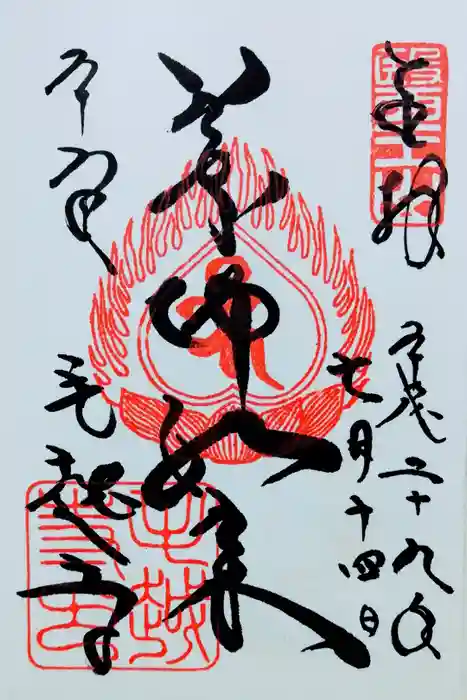 醫王山
奉拝
平成二十九年
七月十四日
薬師如来
平泉
毛越寺